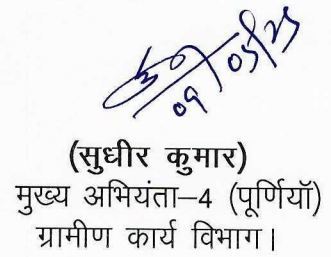 09/05/25
(सुधीर कुमार)
मुख्य अभियंता–4 (पूर्णियाँ)
ग्रामीण कार्य विभाग।